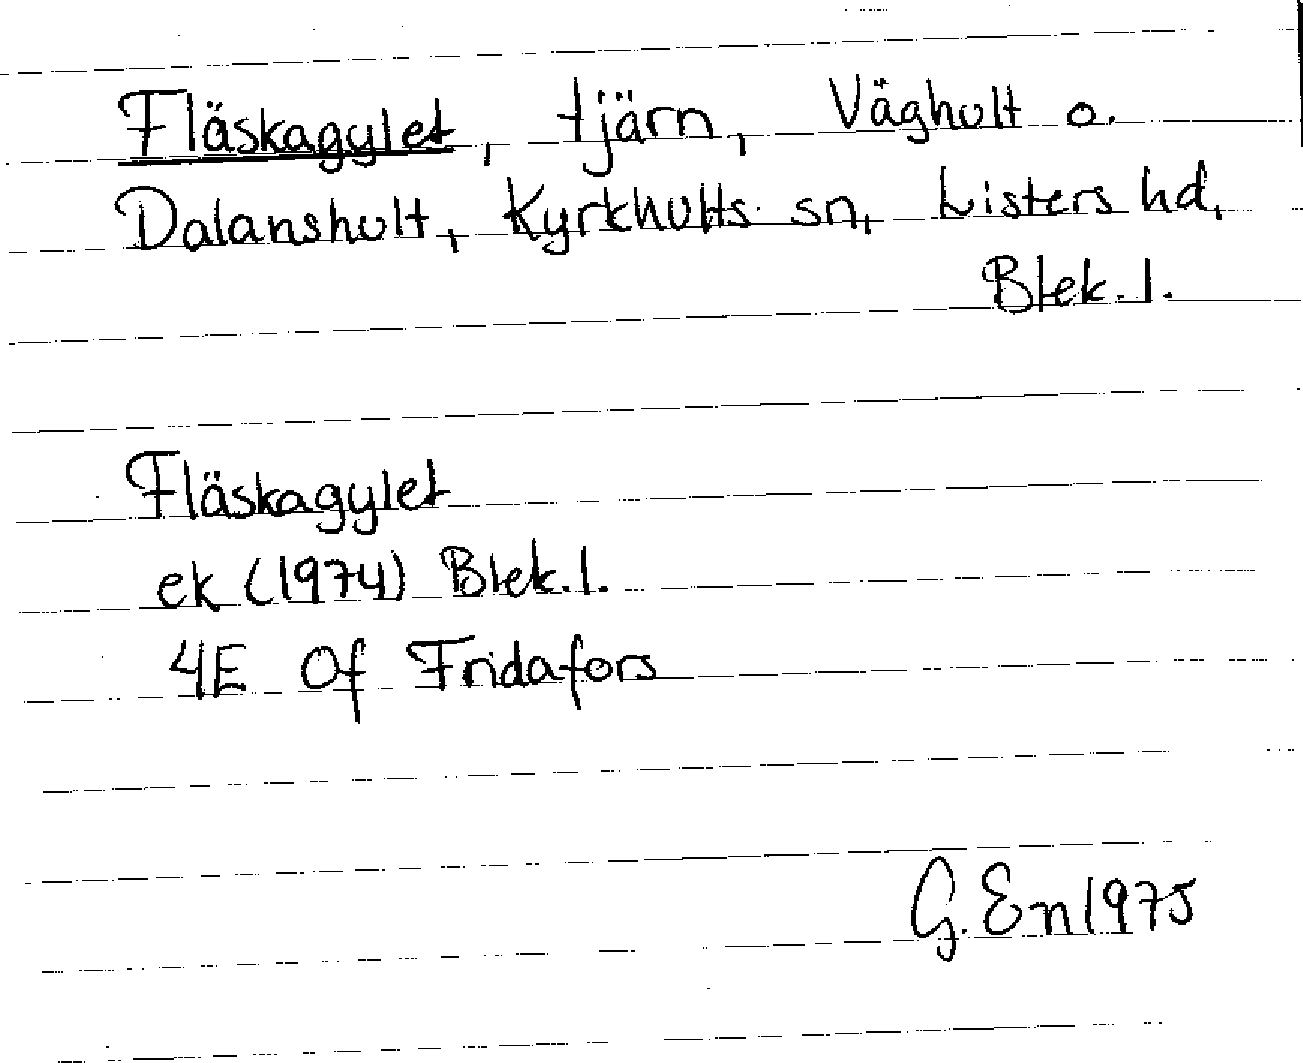 Fläskagylet, tjärn, Väghult o.
Dalanshult, Kyrkhults sn, Listers hd,
Blek. l.
Fläskagylet
ek (1974) Blek. l.
4E 0f Fridafors
G. En 1975